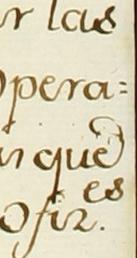 r las
pera=
n que
es
Ofiz.